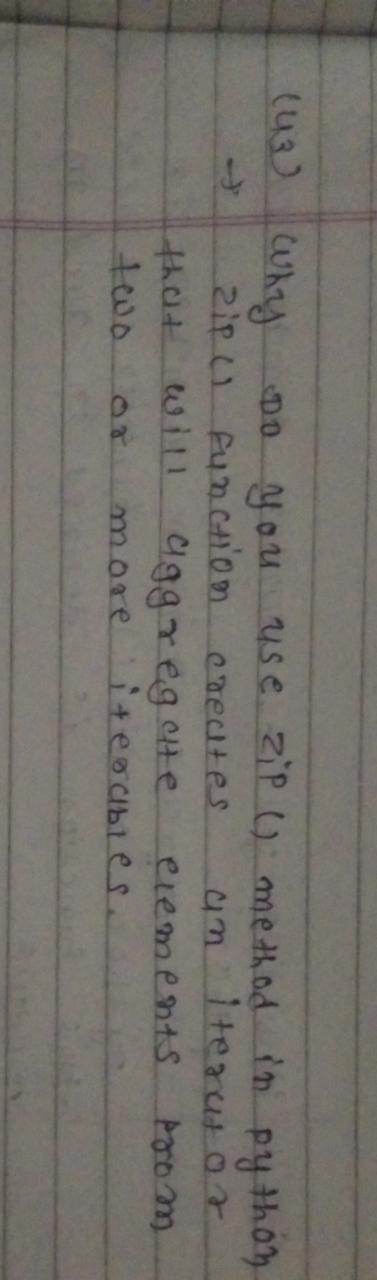 (43) Why Do you use zip () method in python
→ zip () function creates an iterator
that will aggregate elements from
two or more iterables.